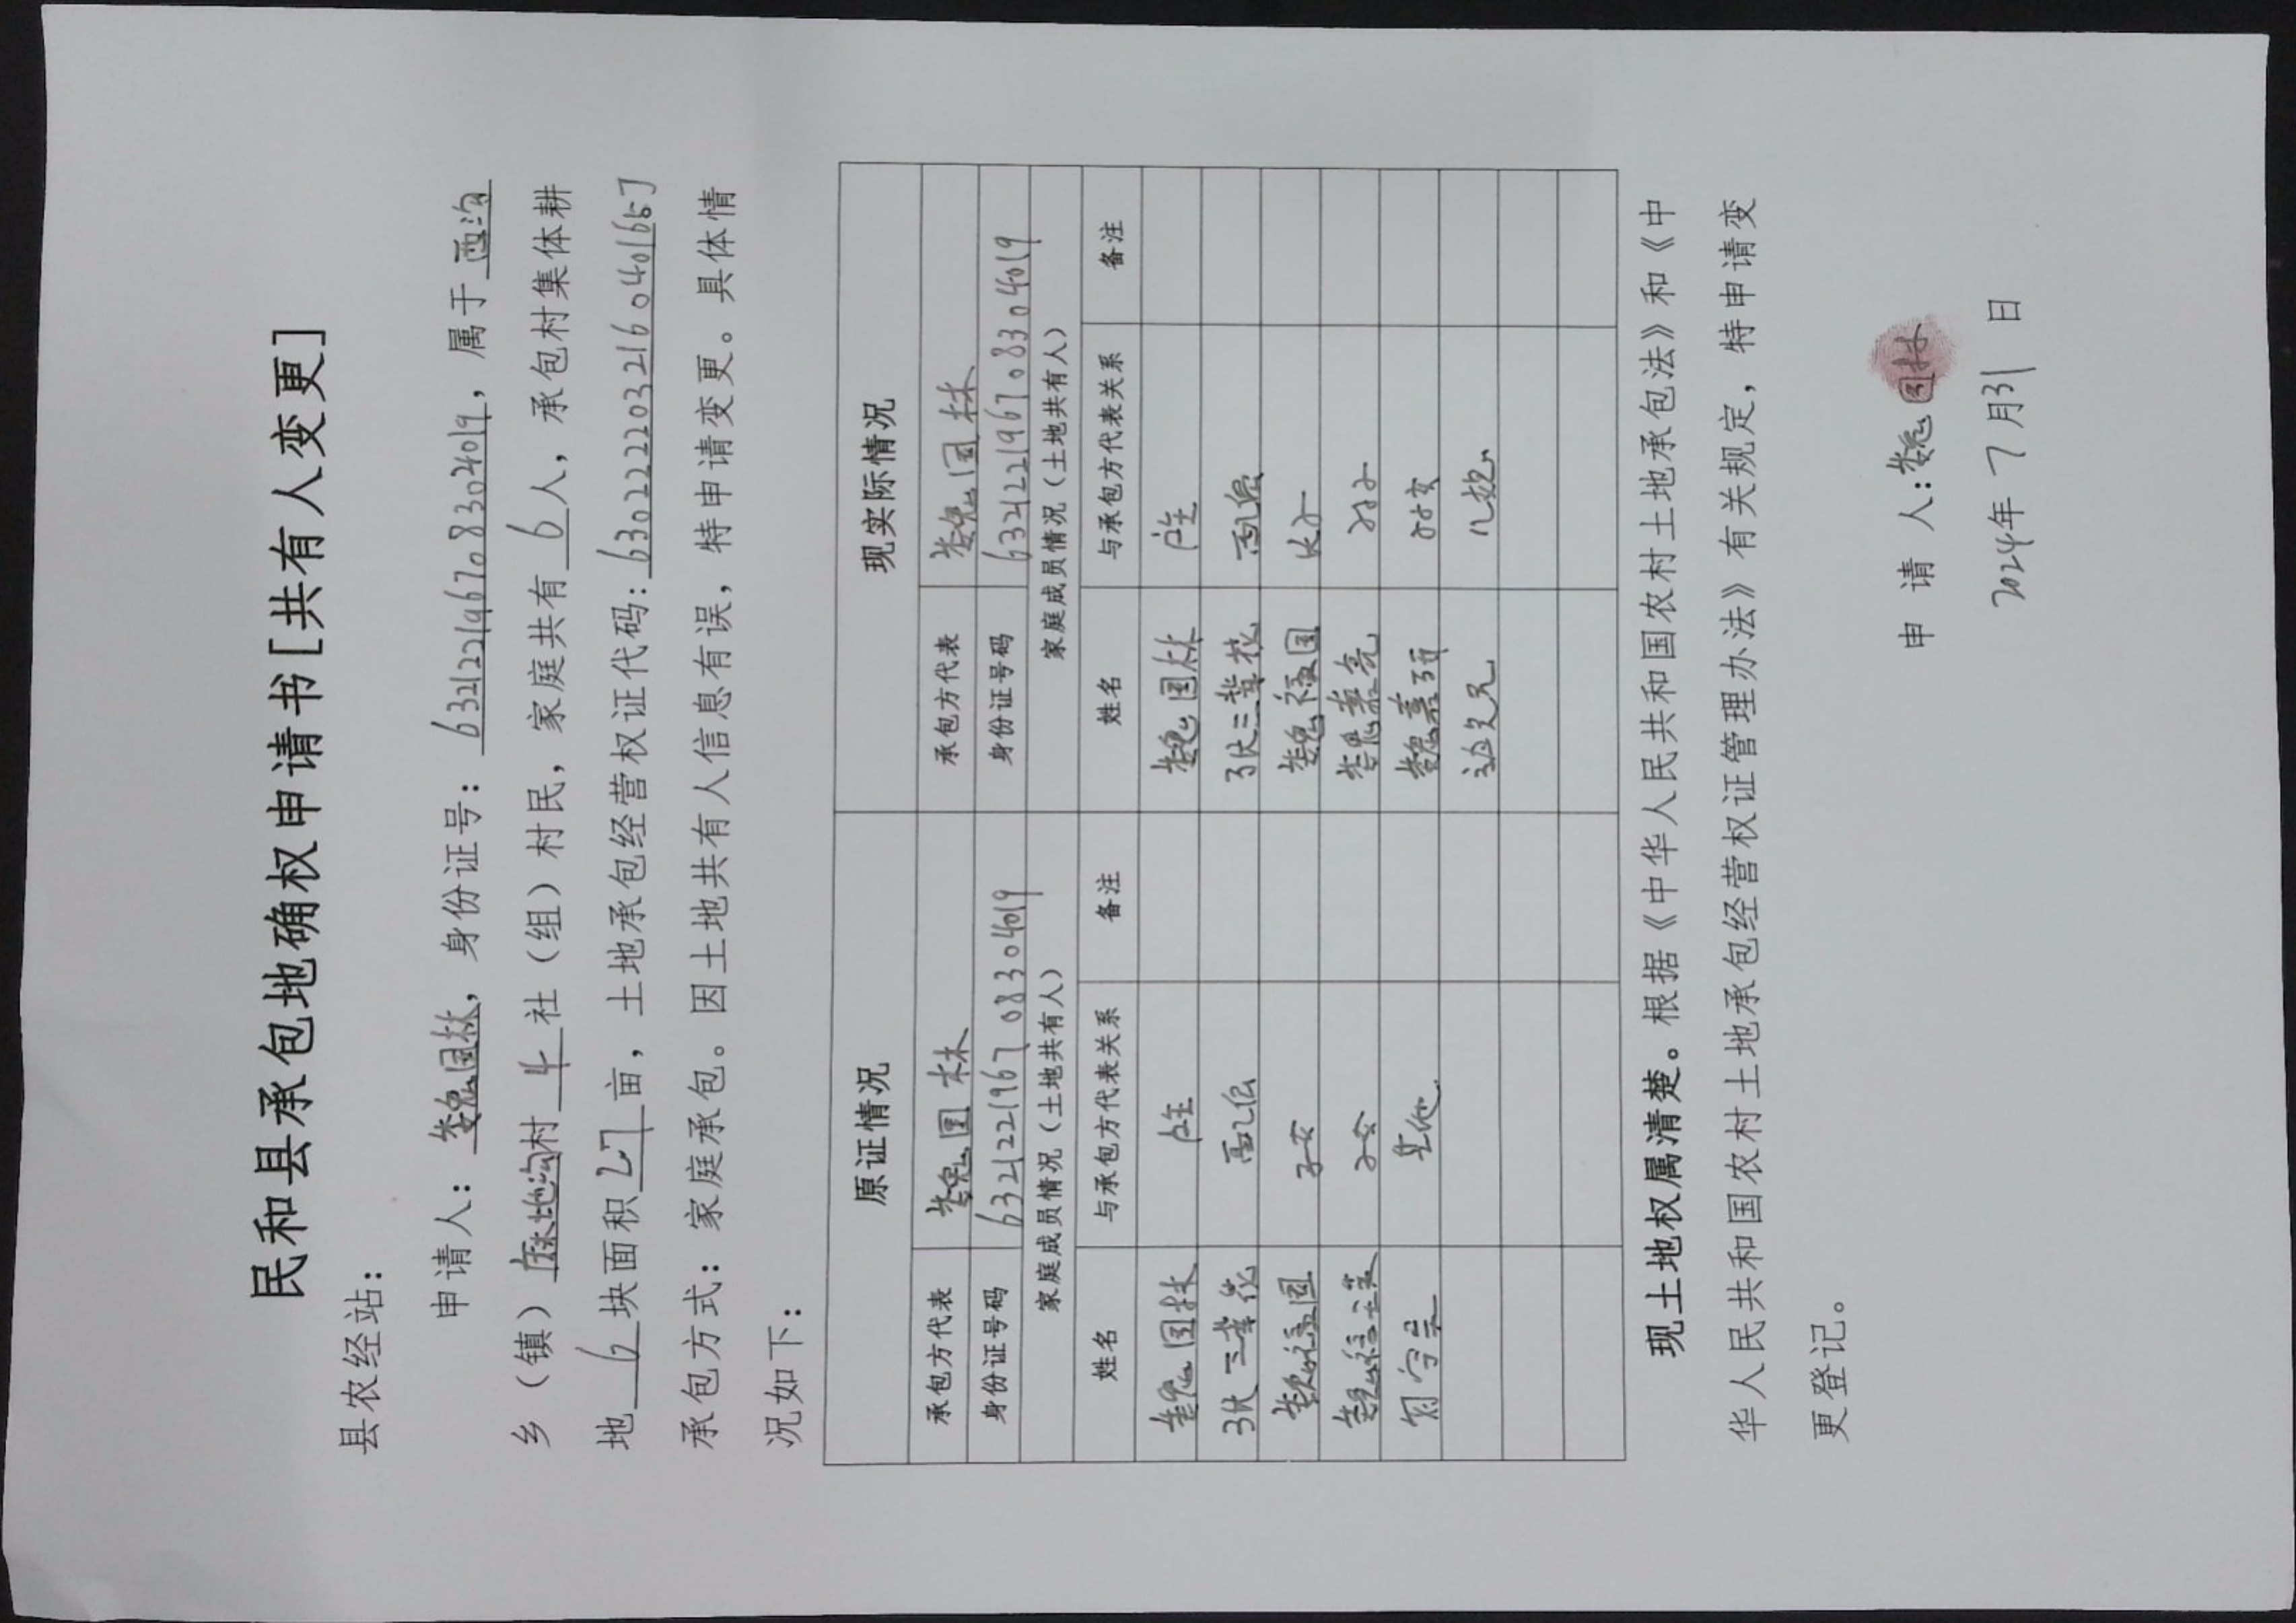 民和县承包地确权申请书[共有人变更]
县农经站：
申请人：魏国林，身份证号：632122196708304019，属于西沟
乡（镇）麻地沟村 4 社（组）村民，家庭共有 6 人，承包村集体耕
地 6 块面积 2.7 亩，土地承包经营权证代码：630222203216040165J
承包方式：家庭承包。因土地共有人信息有误，特申请变更。具体情
况如下：
原证情况 现实际情况
承包方代表 魏国林 承包方代表 魏国林
身份证号码 632122196708304019 身份证号码 632122196708304019
家庭成员情况（土地共有人） 家庭成员情况（土地共有人）
姓名 与承包方代表关系 备注 姓名 与承包方代表关系 备注
魏国林 户主 魏国林 户主
张三辈花 配偶 张三辈花 配偶
魏福国 子女 魏福国 长子
魏福玉英 子女 魏嘉亮 孙子
其他 魏嘉研 孙女
儿媳
现土地权属清楚。根据《中华人民共和国农村土地承包法》和《中
华人民共和国农村土地承包经营权证管理办法》有关规定，特申请变
更登记。
申 请 人：魏国林
2024年 7 月31 日